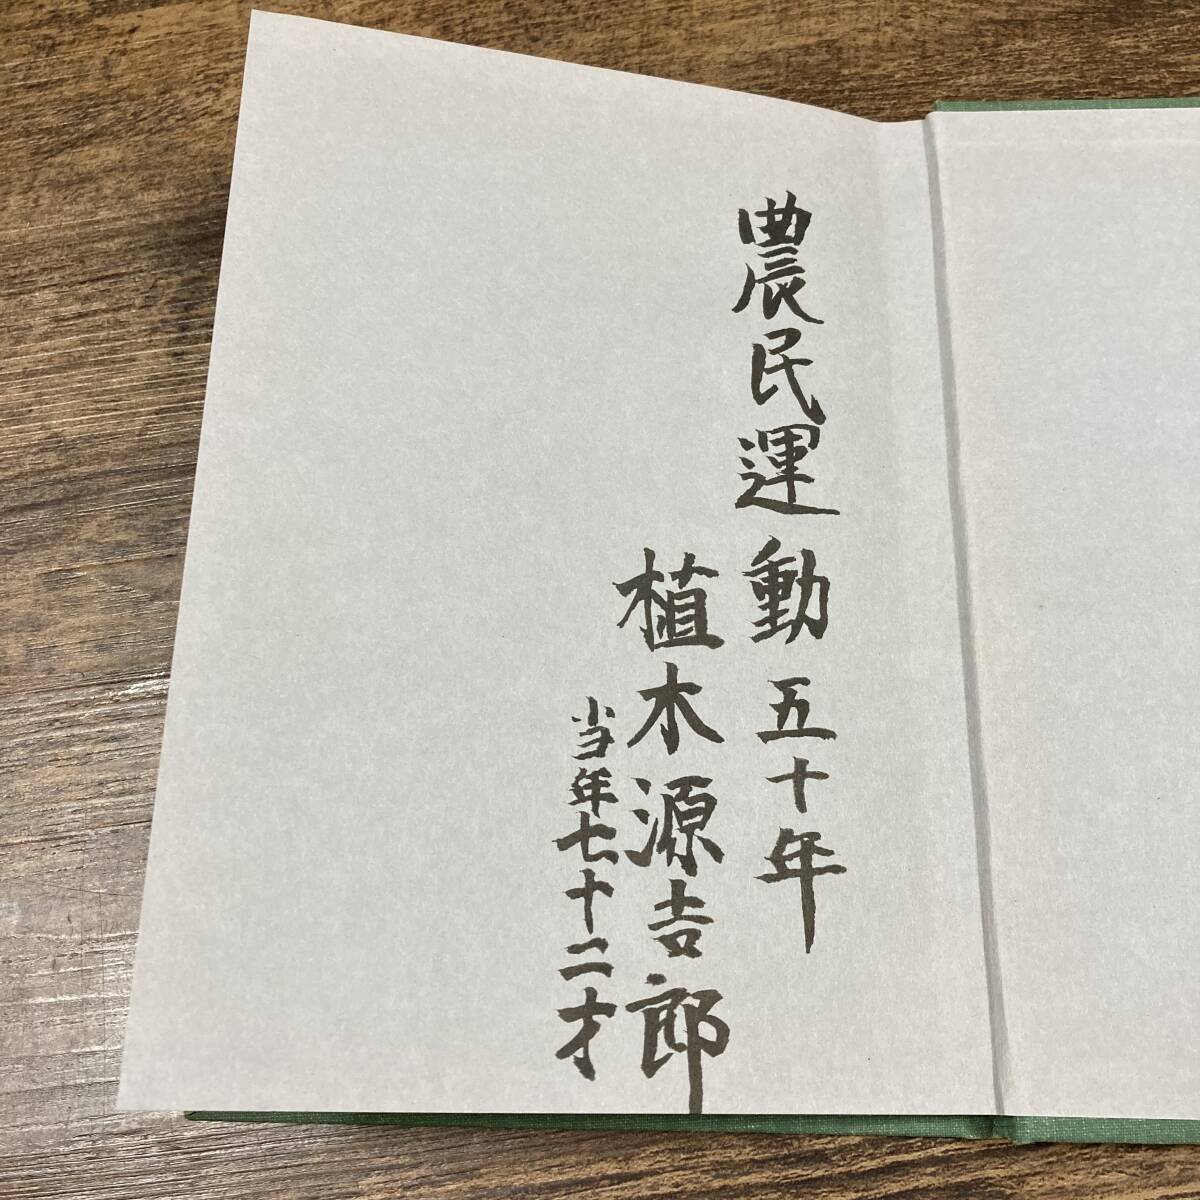 農民運動五十年
植木源吉郎
当年七十二才